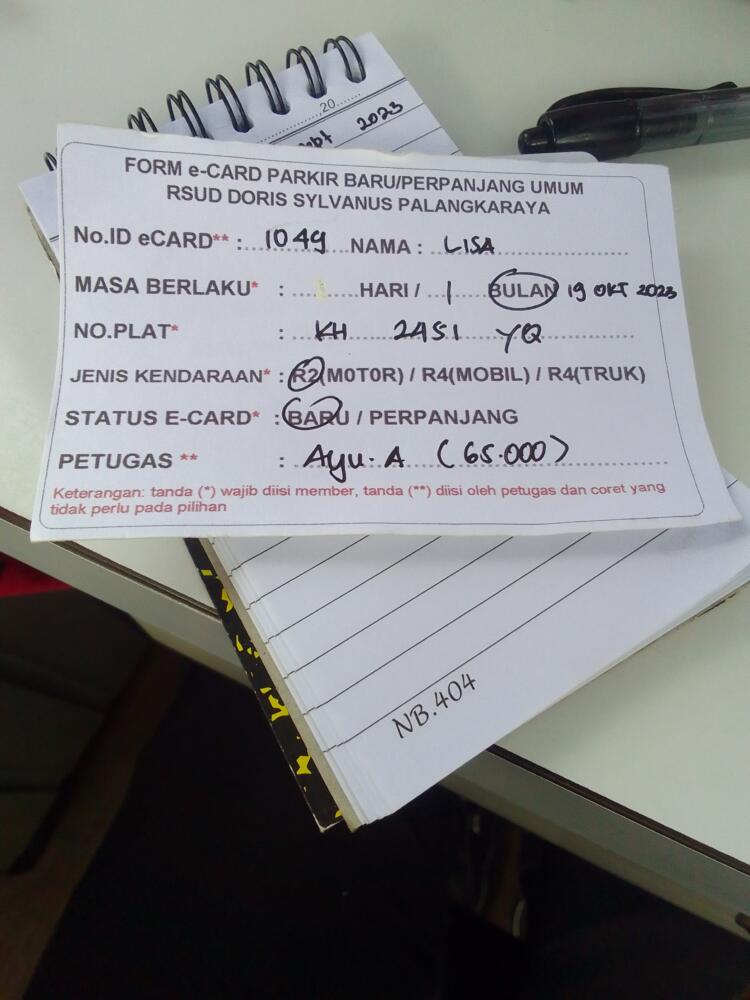 20........
2023
FORM e-CARD PARKIR BARU/PERPANJANG UMUM
RSUD DORIS SYLVANUS PALANGKARAYA
No.ID eCARD** : 1049 NAMA : LISA
MASA BERLAKU* : HARI / 1 BULAN 19 OKT 2023
NO.PLAT* : KH 2451 YQ
JENIS KENDARAAN* : R2(MOTOR) / R4(MOBIL) / R4(TRUK)
STATUS E-CARD* : BARU / PERPANJANG
PETUGAS ** : Ayu. A (65.000)
Keterangan: tanda (*) wajib diisi member, tanda (**) diisi oleh petugas dan coret yang
tidak perlu pada pilihan
NB.404